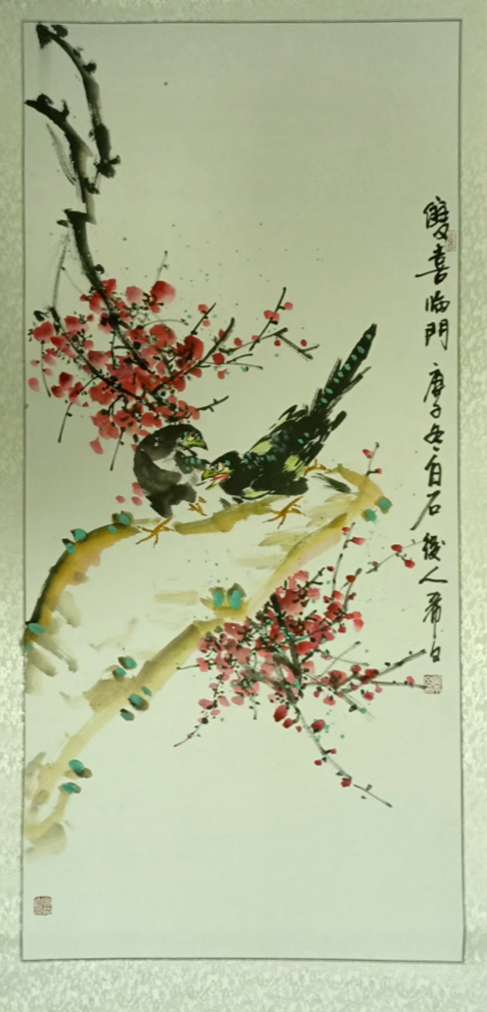 雙喜临門 庚子冬白石後人希白